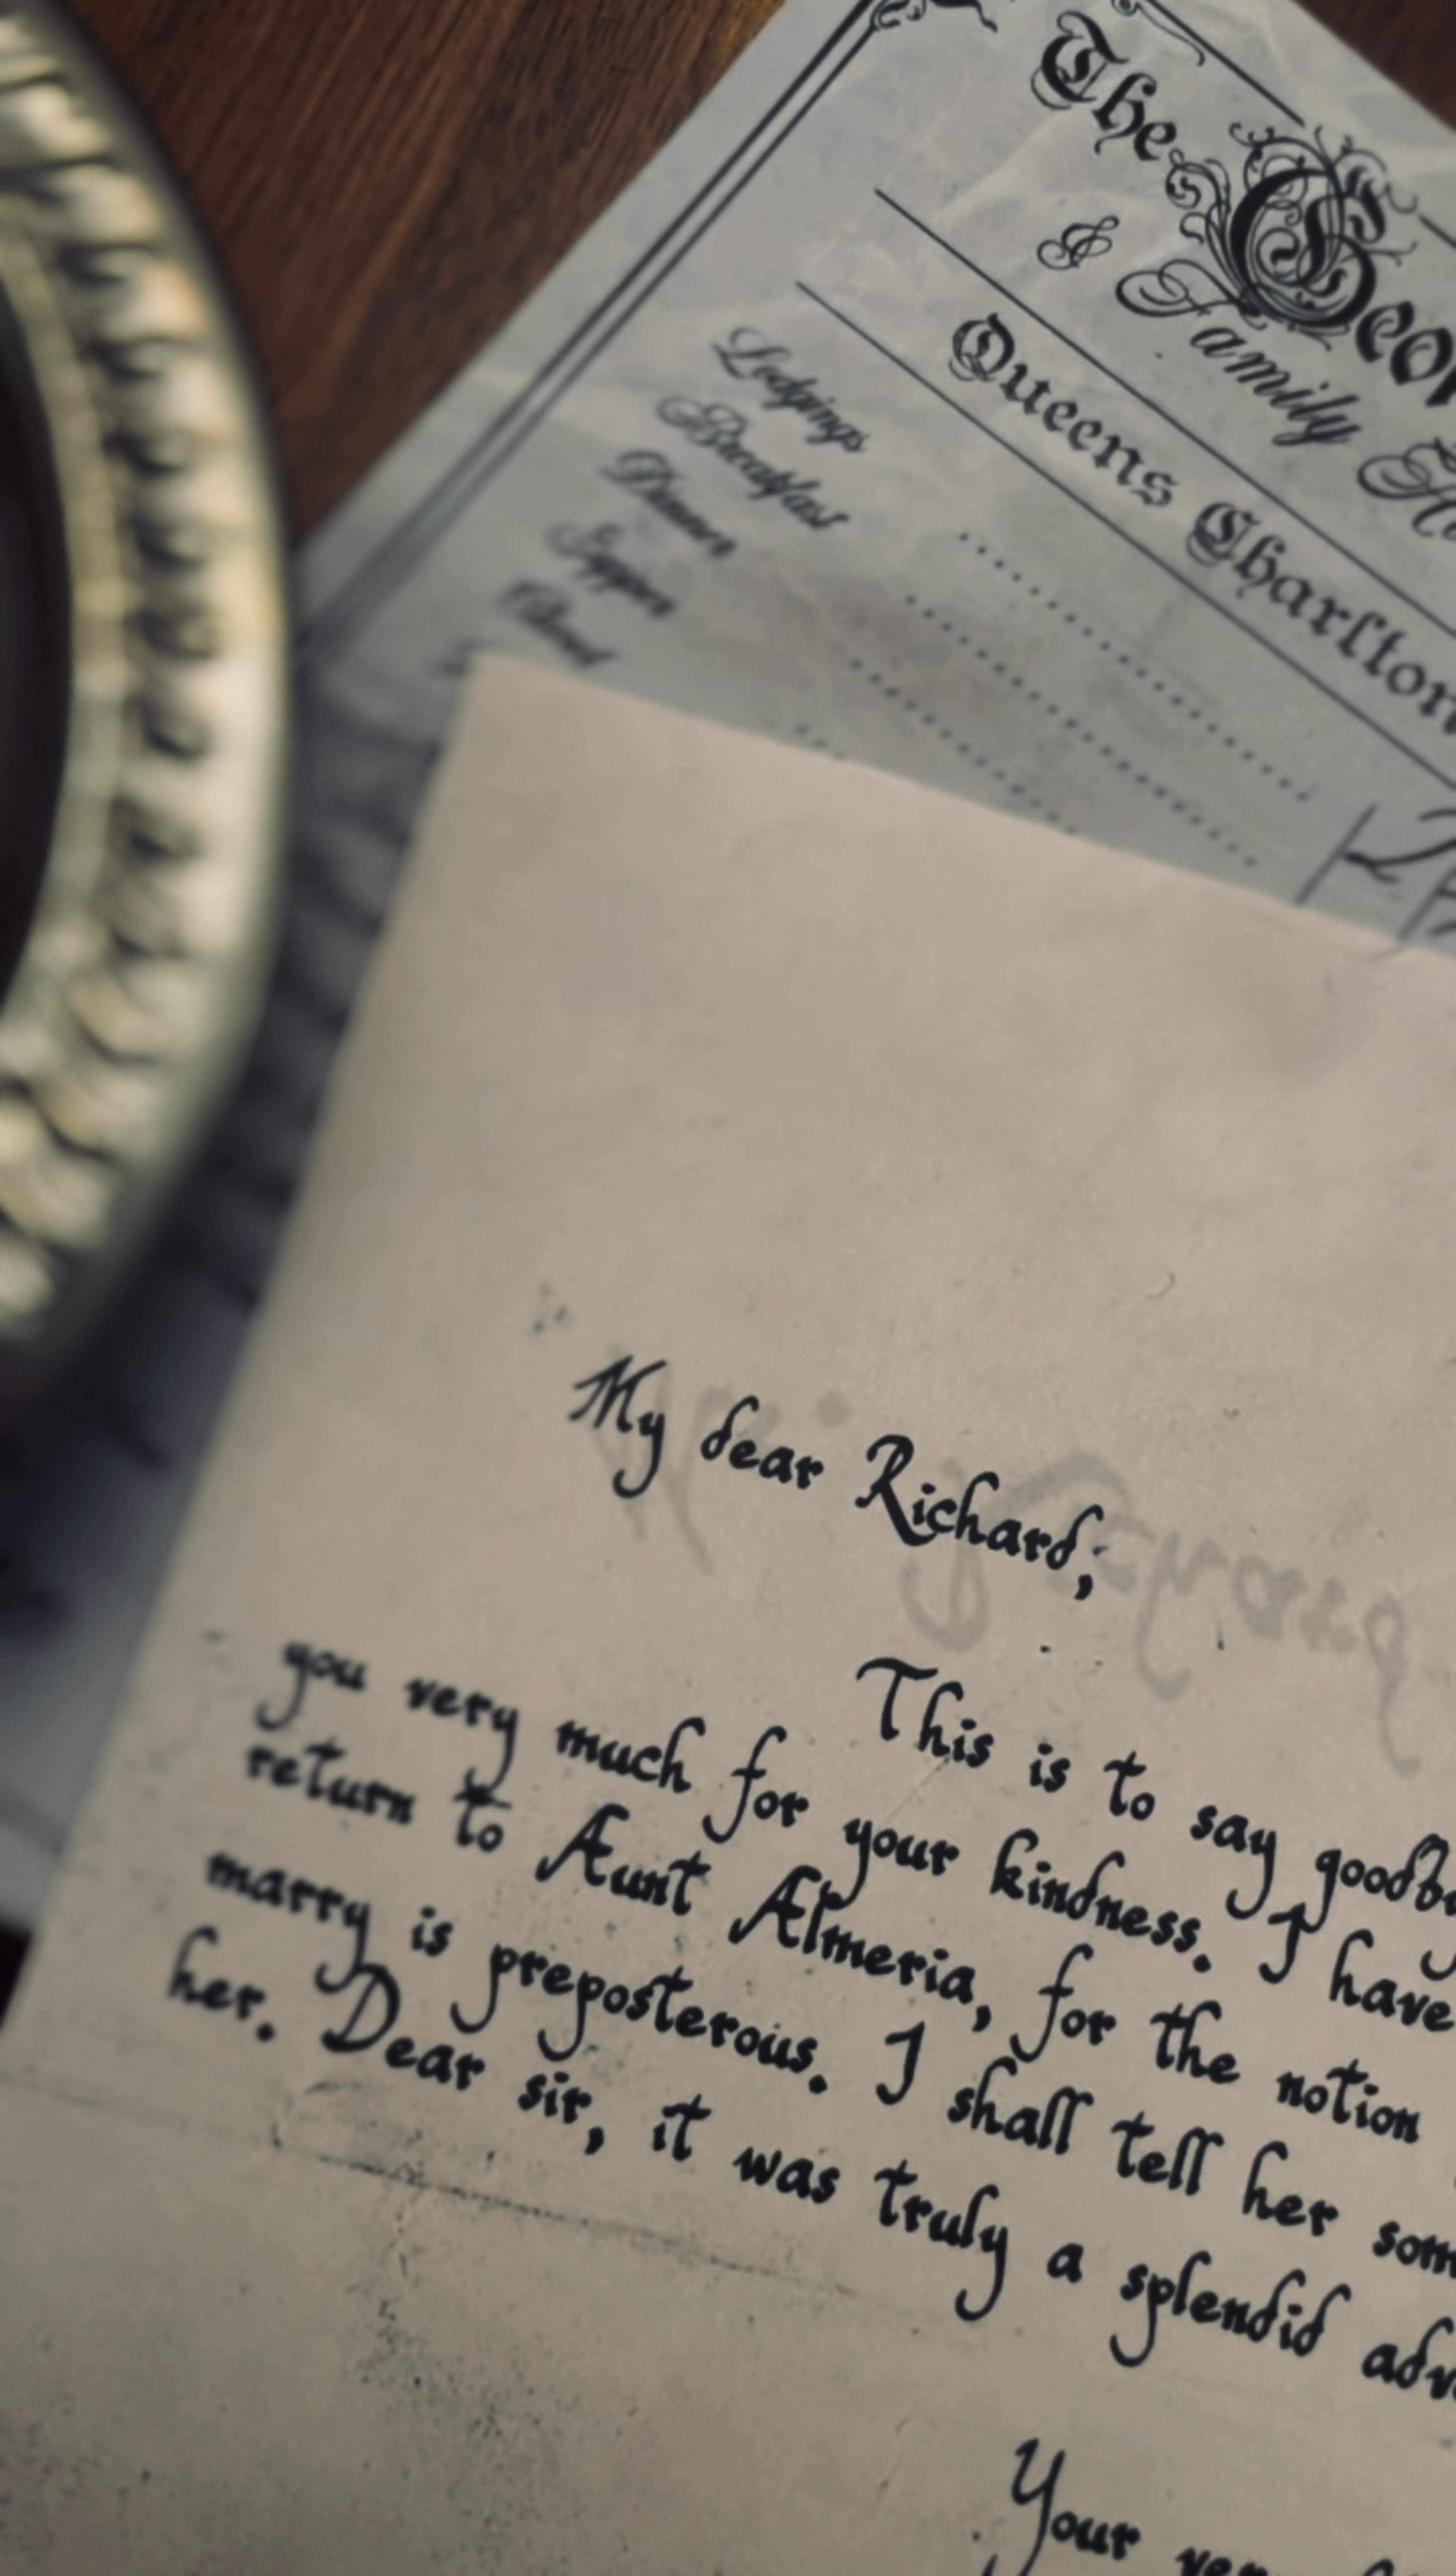 The Geor
& Family H
Queens Charlton
Lodgings
Breakfast
Dinner
Supper
My dear Richard,
This is to say goodb
you very much for your kindness. I have
return to Aunt Almeria, for the notion
marry is preposterous. I shall tell her som
her. Dear sir, it was truly a splendid adv
Your very